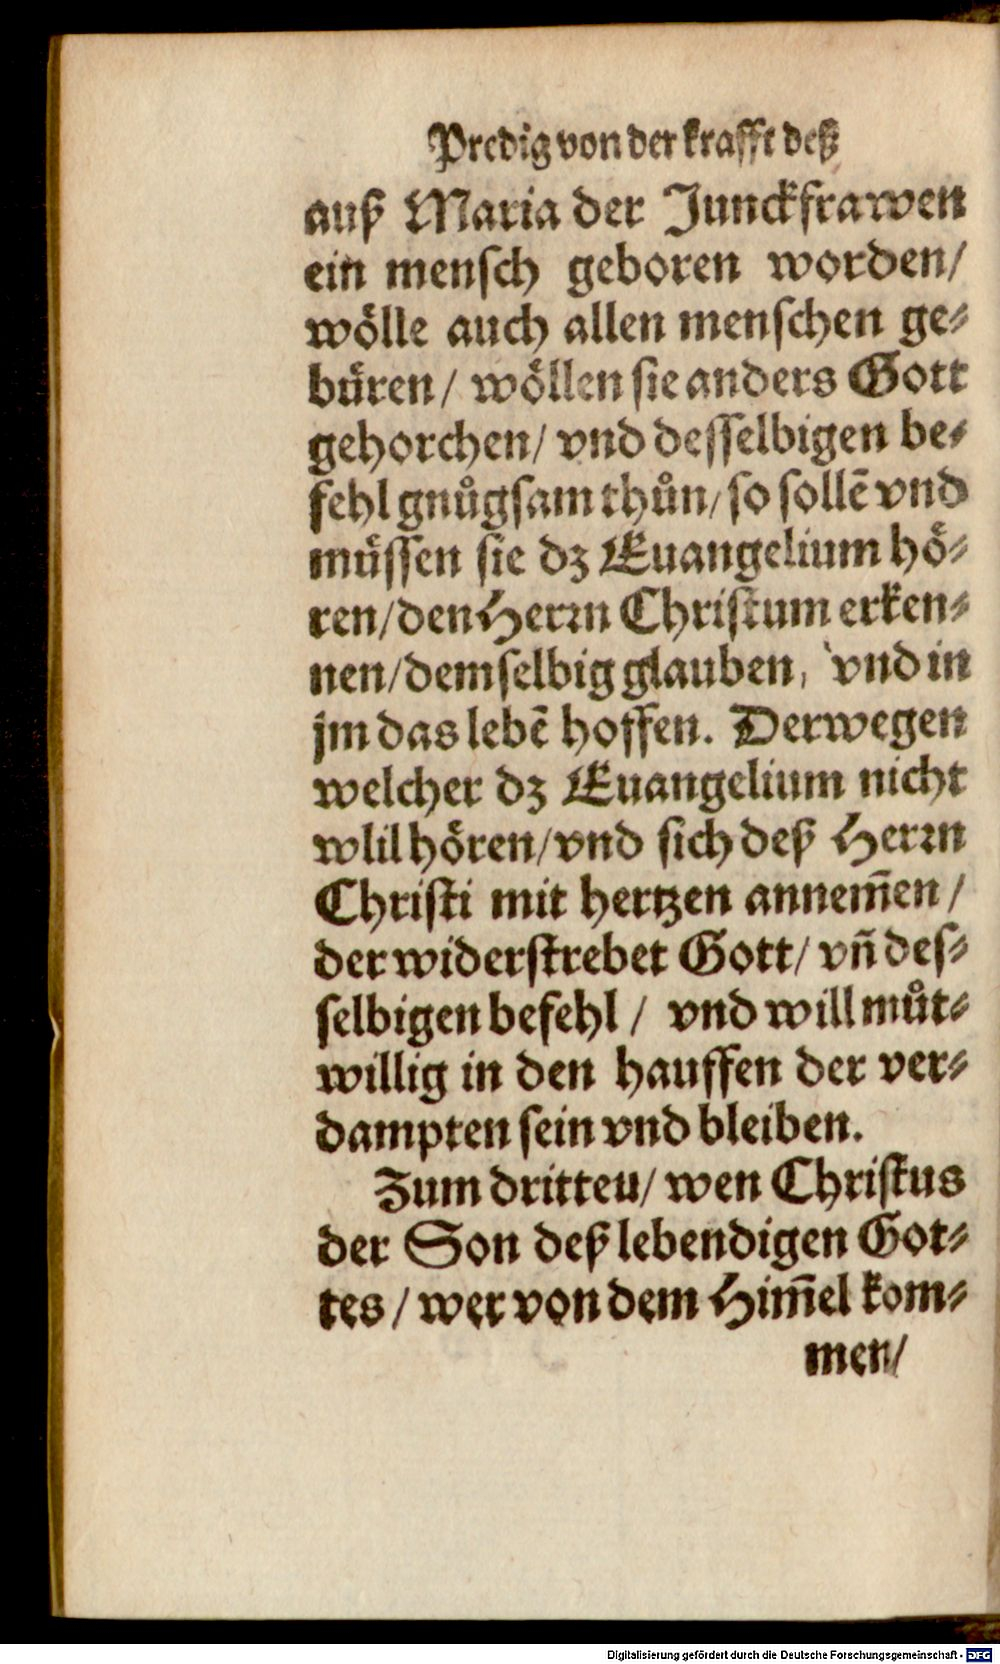 Predig von der krafft deß
auß Maria der Junckfrawen
ein mensch geboren worden/
wölle auch allen menschen ge⸗
büren/ wöllen sie anders Gott
gehorchen/ vnd desselbigen be⸗
fehl gnůgsam thůn/ so sollē vnd
müssen sie dz Euangelium hö⸗
ren/ den Herꝛn Christum erken⸗
nen/ demselbig glauben, vnd in
jm das lebē hoffen. Derwegen
welcher dz Euangelium nicht
wlil hören/ vnd sich deß Herꝛn
Christi mit hertzen annem̄en/
der widerstrebet Gott/ vn̄ des⸗
selbigen befehl/ vnd will můt⸗
willig in den hauffen der ver⸗
dampten sein vnd bleiben.
Zum dritteu/ wen Christus
der Son deß lebendigen Got⸗
tes/ wer von dem Him̄el kom⸗
men/
Digitalisierung gefördert durch die Deutsche Forschungsgemeinschaft - DFG